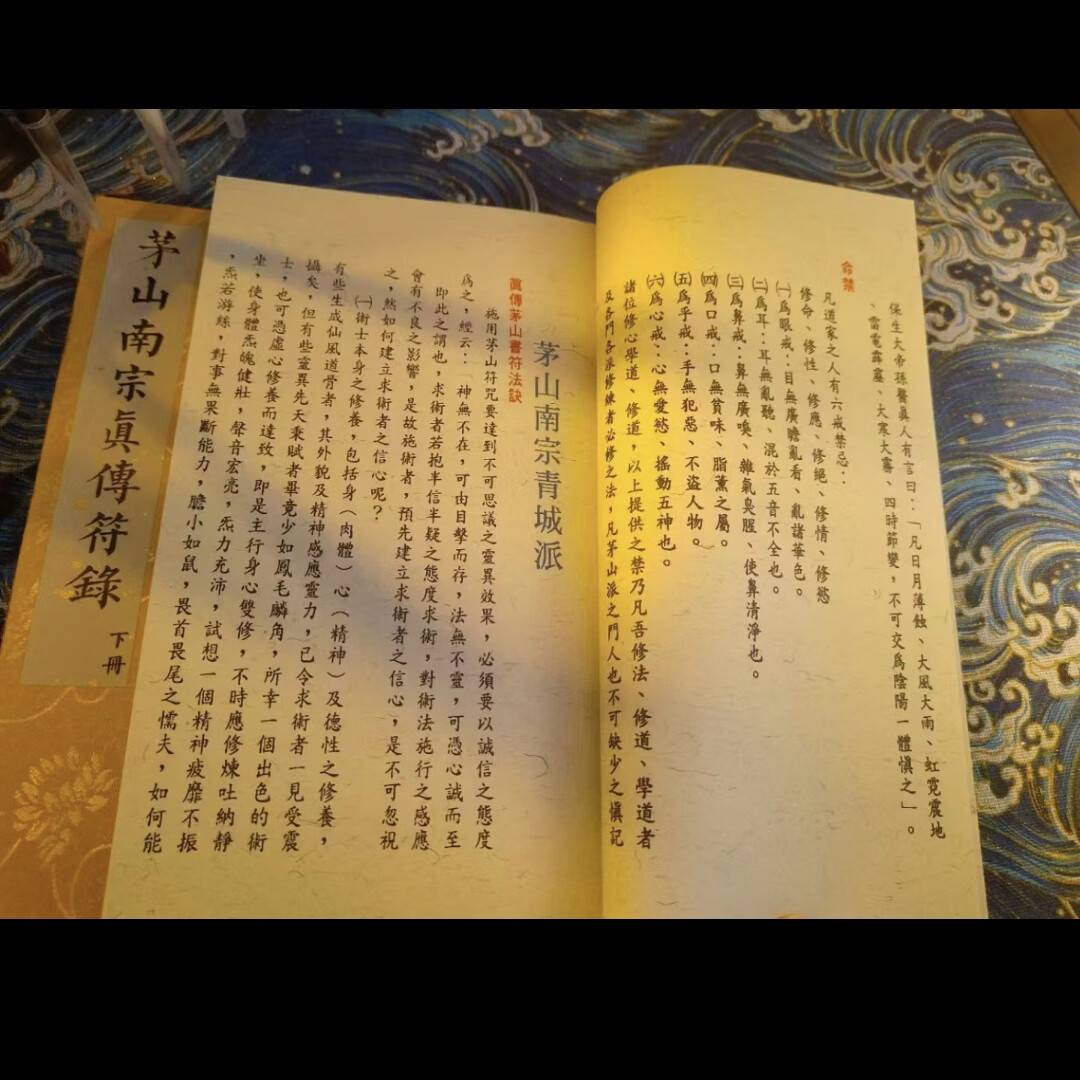 保生大帝孫醫眞人有言曰：「凡日月薄蝕、大風大雨、虹霓震地
、雷電霹靂、大寒大霧、四時節變，不可交爲陰陽一體愼之」。
命禁
凡道家之人有六戒禁忌：
修命、修性、修應、修絕、修情、修慾
㈠爲眼戒：目無廣瞻亂看、亂諸華色。
㈡爲耳：耳無亂聽、混於五音不全也。
㈢爲鼻戒：鼻無廣喚、雜氣臭腥、使鼻清淨也。
㈣爲口戒：口無貧味、脂薰之屬。
㈤爲乎戒：手無犯惡、不盜人物。
㈥爲心戒：心無愛慾、搖動五神也。
諸位修心學道、修道，以上提供之禁乃凡吾修法、修道、學道者
及各門各派修煉者必修之法，凡茅山派之門人也不可缺少之愼記
茅山南宗青城派
眞傳茅山書符法訣
施用茅山符咒要達到不可思議之靈異效果，必須要以誠信之態度
爲之，經云：　神無不在，可由目擊而存，法無不靈，可憑心誠而至
即此之謂也，求術者若抱半信半疑之態度求術，對術法施行之感應
會有不良之影響，是故施術者，預先建立求術者之信心，是不可忽祝
之，然如何建立求術者之信心呢？
㈠術士本身之修養，包括身（肉體）心（精神）及德性之修養，
有些生成仙風道骨者，其外貌及精神感應靈力，已令求術者一見受震
攝矣，但有些靈異先天秉賦者畢竟少如鳳毛麟角，所幸一個出色的術
士，也可憑虛心修養而達致，即是主行身心雙修，不時應修煉吐納靜
坐，使身體炁魄健壯，聲音宏亮，炁力充沛，試想一個精神疲靡不振
，炁若游絲，對事無果斷能力，膽小如鼠，畏首畏尾之懦夫，如何能
茅山南宗眞傳符錄
下冊